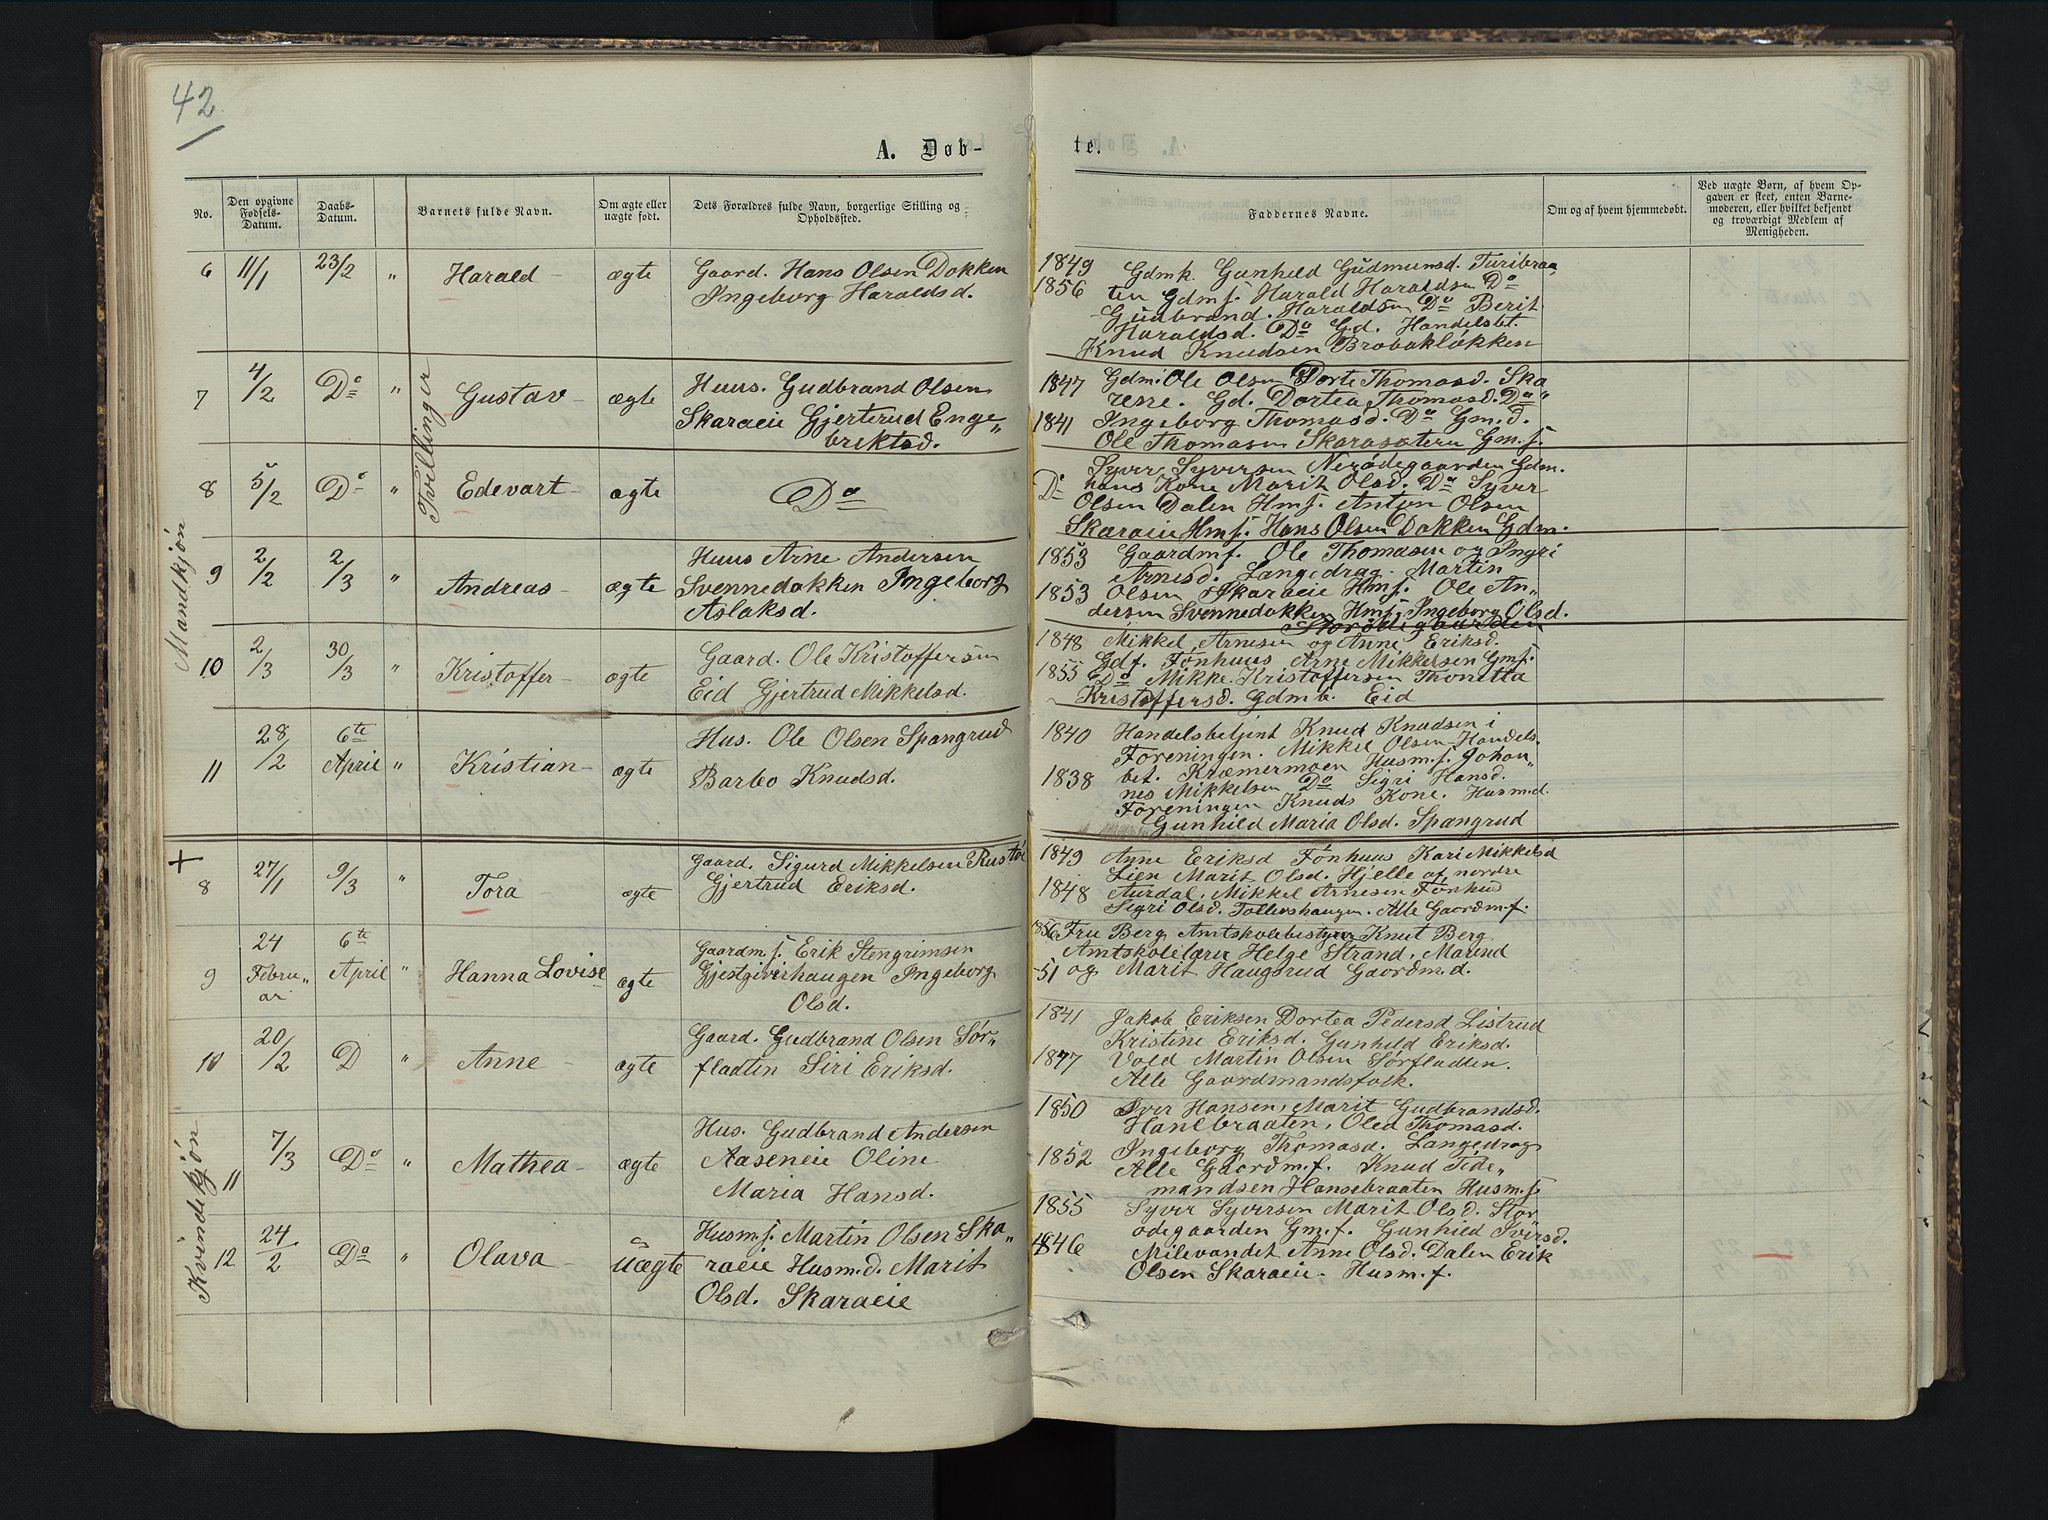 42
A. Døb-
te.
No.
Den opgivne Fødsels-Datum.
Daabs-Datum.
Barnets fulde Navn.
Om ægte eller uægte født.
Dets Forældres fulde Navn, borgerlige Stilling og Opholdssted.
Faddernes Navne.
Om og af hvem hjemmedøbt.
Ved uægte Børn, af hvem Op-
gaven er skeet, enten Barne-
moderen, eller hvilket bekjendt
og troværdigt Medlem af
Menigheden.
Mandkjøn
6 11/1 23/2 " Harald - ægte
Gaard. Hans Olsen Dokken
Ingeborg Haraldsd.
1849
1856
Gdmk. Gunhild Gudmunsd. Turibraa
ten Gdmf. Harald Haraldsen Do
Gudbrand. Haraldsen Do Berit
Haraldsd. Do Gd. Handelsbt.
Knud Knudsen Brobakløkken
Tvillinger
7 4/2 Do " Gustav - ægte
Huus. Gudbrand Olsen
Skaraeie Gjerterud Enge„
briktsd.
1847
1841
Gdm. Ole Olsen Dorte Thomasd. Ska
resse. Gd. Dortea Thomasd. Do
Ingeborg Thomasd. Do Gm.d.
Ole Thomasen Skarasætern Gm.f.
8 5/2 Do " Edevart - ægte
Do
Do
Syver Syversen Nerødegaarden Gdm.
hans Kone Marit Olsd. Do Syver
Olsen Dalen Hmf. Anton Olsen
Skaraeie Hmf. Hans Olsen Dokken Gdm.
9 2/2 2/3 " Andreas - ægte
Huus Arne Andersen
Svennedokken Ingeborg
Aslaksd.
1853
1853
Gaardmf. Ole Thomasen og Ingri
Arnesd. Langedrag. Martin
Olsen Skaraeie Hmf. Ole An„
dersen Svennedokken Hmf. Ingeborg Olsd.
10 2/3 30/3 " Kristoffer - ægte
Gaard. Ole Kristoffersen
Eid Gjertrud Mikkelsd.
1848
1855
Mikkel Arnesen og Anne Eriksd.
Gdf. Fønhuus Arne Mikkelsen Gmf.
Do Mikke. Kristoffersen Thonetta
Kristoffersd. Gdmb. Eid
11 28/2 6te April " Kristian - ægte
Hus. Ole Olsen Spangrud
Barbo Knudsd.
1840
1838
Handelsbetjent Knud Knudsen i
Foreningen. Mikkel Olsen Handels.
bet. Kræmermoen Husm.f. Johan„
nes Mikkelsen Do Sigri Hansd.
Foreningen Knuds Kone. Husm.d.
Gunhild Maria Olsd. Spangrud
Kvindekjøn
+
8 27/1 9/3 " Tora ægte
Gaard. Sigurd Mikkelsen Rustøe
Gjertrud Eriksd.
1849
1848
Anne Eriksd Fønhuus Kari Mikkelsd
Lien Marit Olsd. Hjelle af nordre
Aurdal, Mikkel Arnesen Fønhus
Sigri Olsd. Tollershaugen. Alle Gaardm.f.
9 24 Febru„ar 6te April " Hanna Lovise ægte
Gaardm.f. Erik Stengrimsen
Gjestgiverhaugen Ingeborg
Olsd.
1856
-51
Fru Berg Amtskolebestyrer Knut Berg
Amtskolelærer Helge Strand, Marend
og Marit Haugsrud Gaardm.d.
10 20/2 D " Anne - ægte
Gaard. Gudbrand Olsen Sør„
fladten Siri Eriksd.
1841
1847
Jakob Eriksen Dortea Pedersd Listrud
Kristine Eriksd. Gunhild Eriksd.
Vold Martin Olsen Sørfladden.
Alle Gaardmandsfolk.
11 7/3 Do " Mathea - ægte
Hus. Gudbrand Andersen
Aaseneie Oline
Maria Hansd.
1850
1852
Iver Hansen, Marit Gudbrandsd.
Hanebraaten, Oled Thomasd.
Ingeborg Thomasd. Langedrag
Alle Gaardm.f. Knud Tide„
mandsen Hansebraaten Husm.f.
12 24/2 Do " Olava - uægte
Husm.f. Martin Olsen Ska„
raeie Husm.d. Marit
Olsd. Skaraeie
1855
1846
Syver Syversen Marit Olsd. Stor
ødegaarden Gm.f. Gunhild Iversd.
Milevandet Anne Olsd. Dalen Erik
Olsen Skaraeie. Husm.f.